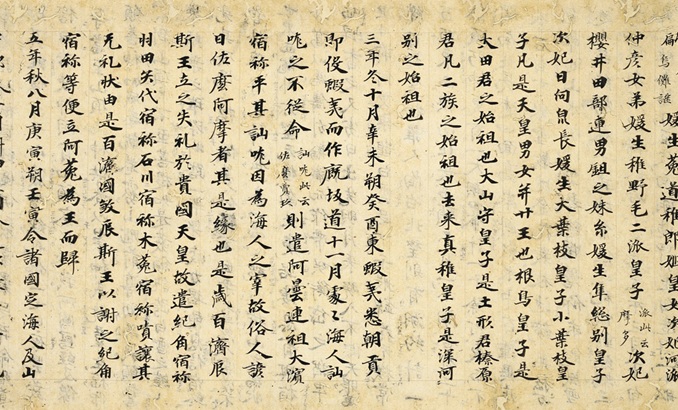 媛生菟道稚郎姫皇女次妃河派
仲彦女弟媛生稚野毛二派皇子 派此云 摩多 次妃
櫻井田部連男鉏之妹糸媛生隼総別皇子
次妃日向泉長媛生大葉枝皇子小葉枝皇
子凡是天皇男女并廿王也根鳥皇子是
大田君之始祖也大山守皇子是土形君榛原
君凡二族之始祖也去来真稚皇子是深河
別之始祖也
三年冬十月辛未朔癸酉東蝦夷悉朝貢
即役蝦夷而作厩坂道十一月處〻海人訕
哤之不從命 訕哤此云 佐麼賣玖 則遣阿曇連祖大濱
宿祢平其訕哤因為海人之宰故俗人諺
曰佐麼阿摩者其是緣也是歳百濟辰
斯王立之失礼於貴國天皇故遣紀角宿祢
羽田矢代宿祢石川宿祢木菟宿祢嘖讓其
无礼狀由是百濟國敘辰斯王以謝之紀角
宿祢等便立阿菟為王而歸
五年秋八月庚寅朔壬寅令諸國定海人及山